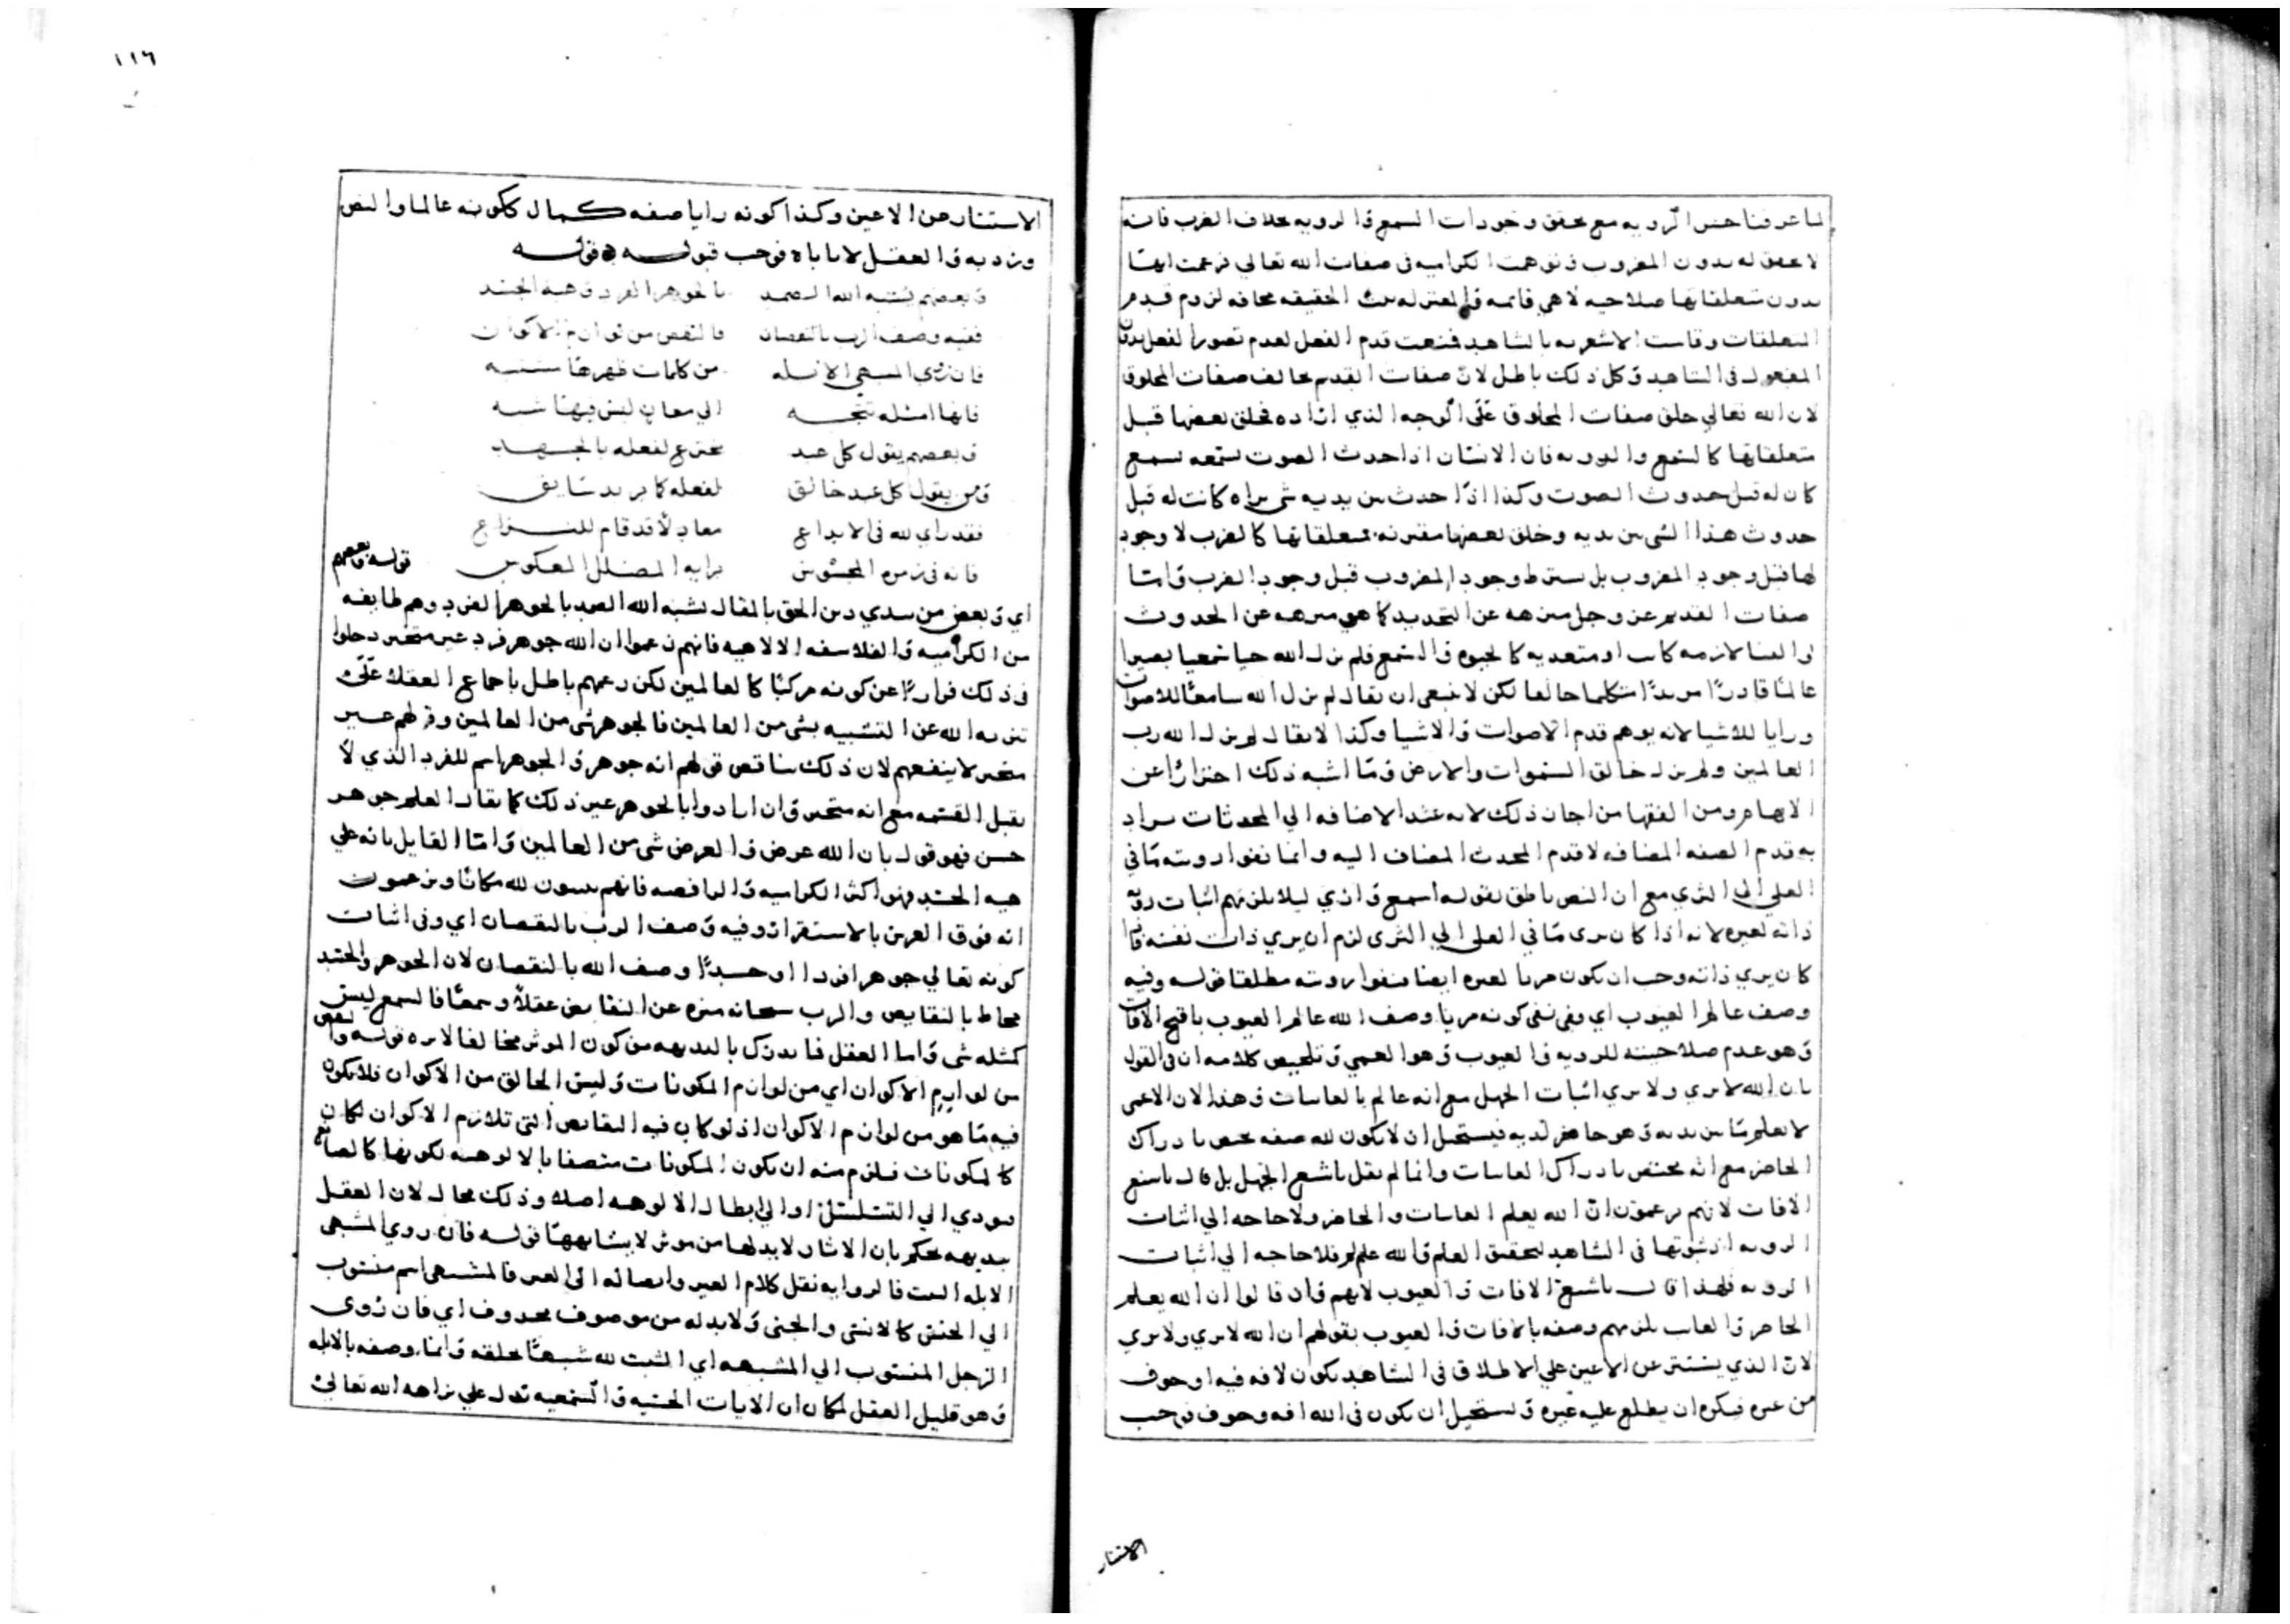 لما عرفنا حسن الرويه مع تحقق وجودات السمع والرويه بخلاف الضرب فانه
لا تحقق له بدون المضروب وتوهمت الكراميه في صفات الله تعالي فزعمت انها
بدون متعلقاتها صلاحيه لا هي قائمه والمعتزله الحقيقه مخافه لزوم قدم
المتعلقات وقاست الاشعريه بالشاهد فمنعت قدم الفعل لعدم تصور الفعل بدون
المفعول في الشاهد وكل ذلك باطل لان صفات القديم تخالف صفات المخلوق
لان الله تعالي خلق صفات المخلوق علي الوجه الذي اراده فخلق بعضها قبل
متعلقاتها كالسمع والرويه فان الانسان اذا حدث الصوت سمعه بسمع
كان له قبل حدوث الصوت وكذا اذا حدث بين يديه شي يراه كانت له قبل
حدوث هذا الشي بين يديه وخلق بعضها مقترنه بمتعلقاتها كالضرب لا وجود
لها قبل وجود المضروب بل يشترط وجود المضروب قبل وجود الضرب واما
صفات القديم عز وجل منزهه عن التحديد كما هي منزهه عن الحدوث
لازمه كانت او متعديه كالحيوه والسمع فلم يزل الله حيا سميعا بصيرا
عالما قادرا مريدا متكلما خالقا لكن لا ينبغي ان يقال لم يزل الله سامعا للاصوات
ورايا للاشيا لانه يوهم قدم الاصوات والاشيا وكذا لا يقال لم يزل الله رب
العالمين ولم يزل خالق السموات والارض وما اشبه ذلك احترازا عن
الايهام ومن الفقها من اجاز ذلك لانه عند الاضافه الي المحدثات يراد
به قدم الصفه المضافه لا قدم المحدث المضاف اليه وانما نفوا رويته ما في
العلي الي الثري مع ان النص ناطق بقوله اسمع واري ليلا يلزمهم اثبات رويه
ذاته لغيره لانه اذا كان يري ما في العلي الي الثري لزم ان يري ذات نفسه فاذا
كان يري ذاته وجب ان يكون مريا لغيره ايضا فنفوا رويته مطلقا قوله وفيه
وصف عالم العيوب اي وفي نفي كونه مريا وصف الله عالم العيوب باقبح الافات
وهو عدم صلاحيته للرويه والعيوب وهو العمي وتلخيص كلامه ان في القول
بان الله لا يري ولا يري اثبات الجهل مع انه عالم بالغايبات وهذا لان الاعمي
لا يعلم ما بين يديه وهو حاضر لديه فيستحيل ان لا يكون لله صفه تختص بادراك
الحاضر مع انه مختص بادراك الغايبات وانما لم يقل باشنع الجهل بل قال باشنع
الافات لانهم يزعمون ان الله يعلم الغايبات والحاضر ولا حاجه الي اثبات
الرويه اذ ثبوتها في الشاهد لتحقيق العلم والله عليم فلا حاجه الي اثبات
الرويه فلهذا قال باشنع الافات والعيوب لانهم وان قالوا ان الله يعلم
الحاضر والغايب يلزمهم وصفه بالافات والعيوب بقولهم ان الله لا يري ولا يري
لان الذي يستتر عن الاعين علي الاطلاق في الشاهد يكون لافه فيه او خوف
من غيره فيكره ان يطلع عليه غيره ويستحيل ان يكون في الله افه وخوف فوجب
الاستتار
١١٦
الاستتار عن الاعين وكذا كونه رايا صفه كمال ككونه عالما والنص
ورد به والعقل لا ياباه فوجب قبوله قوله
وبعضهم يشبه الله الصمد بالجوهر الفرد وهيه الجسد
ففيه وصف الرب بالنقصان والنقص من لوازم الاكوان
فان روي المشبهي الابله من كلمات ظهرها مشتبه
فانها امثله متجه الي معان ليس فيها شبه
وبعضهم يقول كل عبد مخترع لفعله بالجهد
ومن يقول كل عبد خالق لفعله كما يريد سابق
فقد راي لله في الابداع معادلا قد قام للنزاع
فانه في زمره المجوس برايه المضلل المعكوس
قوله وبعضهم
اي وبعض من دين الحق بالمقال شبه الله الصمد بالجوهر الفرد وهم طايفه
من الكراميه والفلاسفه الالاهيه فانهم زعموا ان الله جوهر فرد غير متحيز دخلوا
في ذلك فرارا عن كونه مركبا كالعالمين لكن زعمهم باطل باجماع العقلا علي
تنزيه الله عن التشبيه بشي من العالمين فالجوهر شي من العالمين وقولهم غير
متحيز لا ينفعهم لان ذلك يناقض قولهم انه جوهر والجوهر اسم للفرد الذي لا
يقبل القسمه مع انه متحيز وان ارادوا بالجوهر غير ذلك كما يقال العلم جوهر
حسن فهو قول بان الله عرض والعرض شي من العالمين واما القايل بانه علي
هيه الجسد فهو اكثر الكراميه والرافضه فانهم يثبتون لله مكانا ويزعمون
انه فوق العرش بالاستقرار وفيه وصف الرب بالنقصان اي وفي اثبات
كونه تعالي جوهرا فردا او جسدا وصف الله بالنقصان لان الجوهر والجسد
محاط بالنقايص والرب سبحانه منزه عن النقايص عقلا وسمعا فالسمع ليس
كمثله شي واما العقل فما يدرك بالبديهه من كون الموثر مخالفا لاثره قوله والنقص
من لوازم الاكوان اي من لوازم المكونات وليس الخالق من الاكوان فلا يكون
فيه ما هو من لوازم الاكوان اذ لو كان فيه النقايص التي تلازم الاكوان لكان
كالمكونات فلزم منه ان يكون المكونات متصفا بالالوهيه لكونها كالصانع
فيودي الي التسلسل او الي ابطال الالوهيه اصلا وذلك محال لان العقل
ببديهه يحكم بان الاثار لابد لها من موثر لا يشابهها قوله فان روي المشبهي
الابله البيت فالروايه نقل كلام الغير وايصاله الي الغير فالمشبهي اسم منسوب
الي الجنس كالانسي والجني ولابد له من موصوف محذوف اي فان روي
الرجل المنسوب الي المشبهه اي المثبت لله شبها بخلقه وانما وصفه بالابله
وهو قليل العقل لمكان ان الايات الحسيه والسمعيه تدل علي نزاهه الله تعالي